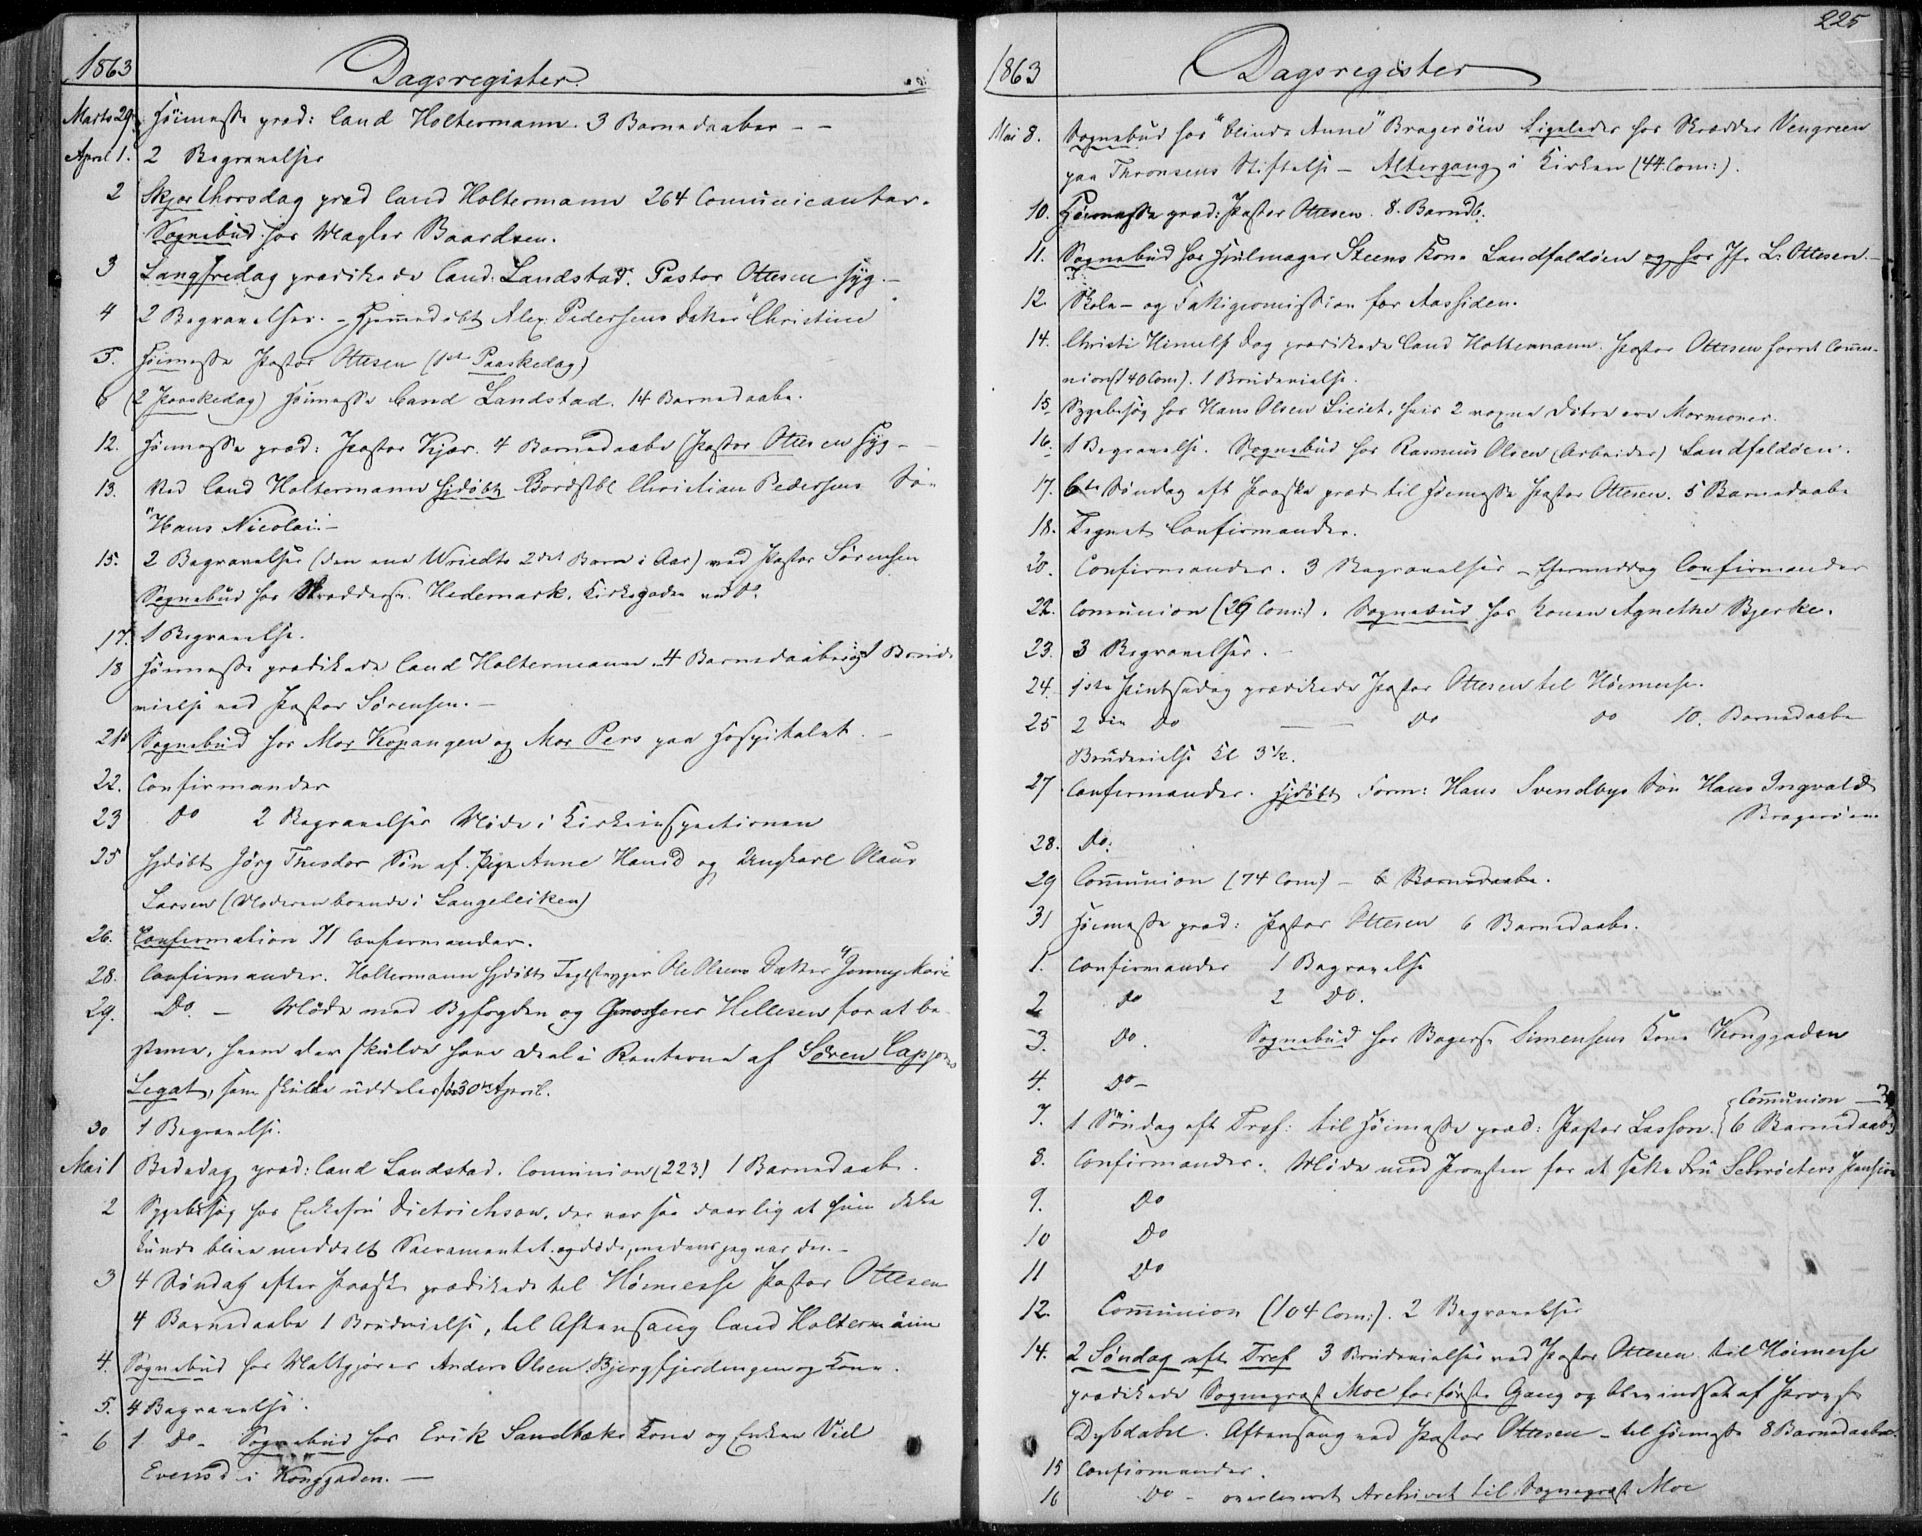 1863 Dagsregister.
Marts 29. Høimesse præd: Cand Holtermann. 3 Barnedaaber - -
April 1. 2 Begravelser
2 Skjærthorsdag præd Cand Holtermann 264 Comunicanter.
Sognebud hos Mægler Baardsen.
3 Langfredag prædikede Cand: Landstad. Pastor Ottesen syg. -
4 2 Begravelser. - Hjemmedøbt Alex. Pedersens Datter "Christine"
5. Høimesse Pastor Ottesen (1ste Paaskedag)
6 (2 Paaskedag) Høimesse Cand Landstad. 14 Barnedaabe.
12. Høimesse præd: Pastor Kjær. 4 Barnedaabe (Pastor Ottesen syg -
13. Ved Cand Holtermann hjdøbt Christian Pedersens Søn
"Hans Nicolai" -
15. 2 Begravelser (den ene Wriedts 2det Barn i Aar) ved Pastor Sørensen
Sognebud hos Hedemark. Kirkegaden
17. 1 Begravelse.
18 Høimesse prædikede Cand Holtermann. 4 Barnedaaber og 1 Brude-
vielse ved Pastor Sørensen. -
21 Sognebud hos Mor Kopangen og Mor Pers paa Hospitalet. -
22. Confirmander
23 Do 2 Begravelser Møde i Kirkeinspectionen
25 Hjdøbt Jørg Theodor Søn af Pige Anne Hansd og Ungkarl Olaus
Larsen (Moderen boende i Langelliken)
26. Confirmation 71 Confirmander.
28. Confirmander. Holtermann hjdøbt Ole Olsens Datter "Jenny Marie
29. Do. - Møde med Byfogden og Grosserer Hellesen for at be-
stemme, hvem der skulde have Deel i Renterne af Søren
Legat, som skulde uddeles den 30te April.
30 1 Begravelse.
Mai 1 Bededag præd: Cand Landstad. Communion (223) 1 Barnedaab.
2 Sygebesøg hos Enkefru Dietrichson, der var saa daarlig at hun ikke
kunde blive meddelt Sacramentet. og døde, medens jeg var der. -
3 4 Søndag efter Paaske prædikede til Høimesse Pastor Ottesen
4 Barnedaabe 1 Brudevielse, til Aftensang Cand Holtermann
4. Sognebud hos Maltgjører Anders Olsen Bjergfjerdingen og Kone.
5. 4 Begravelse.
6 1 Do - Sognebud hos Erik Sandbæks Kone og Enken
i Konggaden. -
225
1863 Dagsregister
Mai 8. Sognebud hos "blinde Anne" Bragerøen Ligeledes hos Skrædder Vengreen
paa Thronsens Stiftelse - Altergang i Kirken (44 Com:).
10. Høimesse præd: Pastor Ottesen. 8. Barndb.
11. Sognebud hos Hjulmager Steens Kone Landfaldøen og hos Jfr L. Ottesen. -
12. Skole- og Fattigcomission for Aassiden.
14. Christi Himmelf. dag prædikede Cand Holtermann. Pastor Ottesen forret Comu-
nion (140 Com). 1 Brudevielse.
15. Sygebesøg hos Hans Olsen Liciet, hvis 2 voxne Døtre ere Mormoner.
16. 1 Begravelse. Sognebud hos Rasmus Olsen (Arbeider) Landfaldøen.
17. 6te Søndag eft Paaske præd til Høimesse Pastor Ottesen. 5 Barnedaabe
18. Tegnet Confirmander.
20. Confirmander. 3 Begravelser - Eftermiddag Confirmander
22. Comunion (29 Com:). Sognebud hos Konen Agnethe Bjerke.
23. 3 Begravelser. -
24. 1ste Pintsedag prædikede Pastor Ottesen til Høimesse.
25 2den Do — Do Do 10. Barnedaabe
Brudevielse Kl 3½.
27 Confirmander. Hjdøbt Form: Hans Svendbys Søn Hans Ingvald
Bragerøen
28. Do:
29 Communion (74 Com) - 6 Barnedaabe.
31 Høimesse præd: Pastor Ottesen 6 Barnedaabe.
1. Confirmander 1 Begravelse
2 do 2 Do.
3. Do. Sognebud hos Simensens Kone Konggaden
4. Do -
Communion -
7. 1 Søndag eft Tref: til Høimesse præd: Pastor Lassen. 6 Barnedaab
8. Confirmander. Møde med Provsten for at søke Fru Schrøeters Pension
9. Do
10 Do
11 Do
12. Communion (104 Com:). 2 Begravelser
14. 2 Søndag eft Tref 3 Brudevielser ved Pastor Ottesen til Høimesse
prædikede Sognepræst Moe for første Gang og blev indsat af Provst
Dybdahl. Aftensang ved Pastor Ottesen - til Høimesse 8 Barnedaabe.
15 Confirmander.
16 Do - overleveret Archivet til Sognepræst Moe